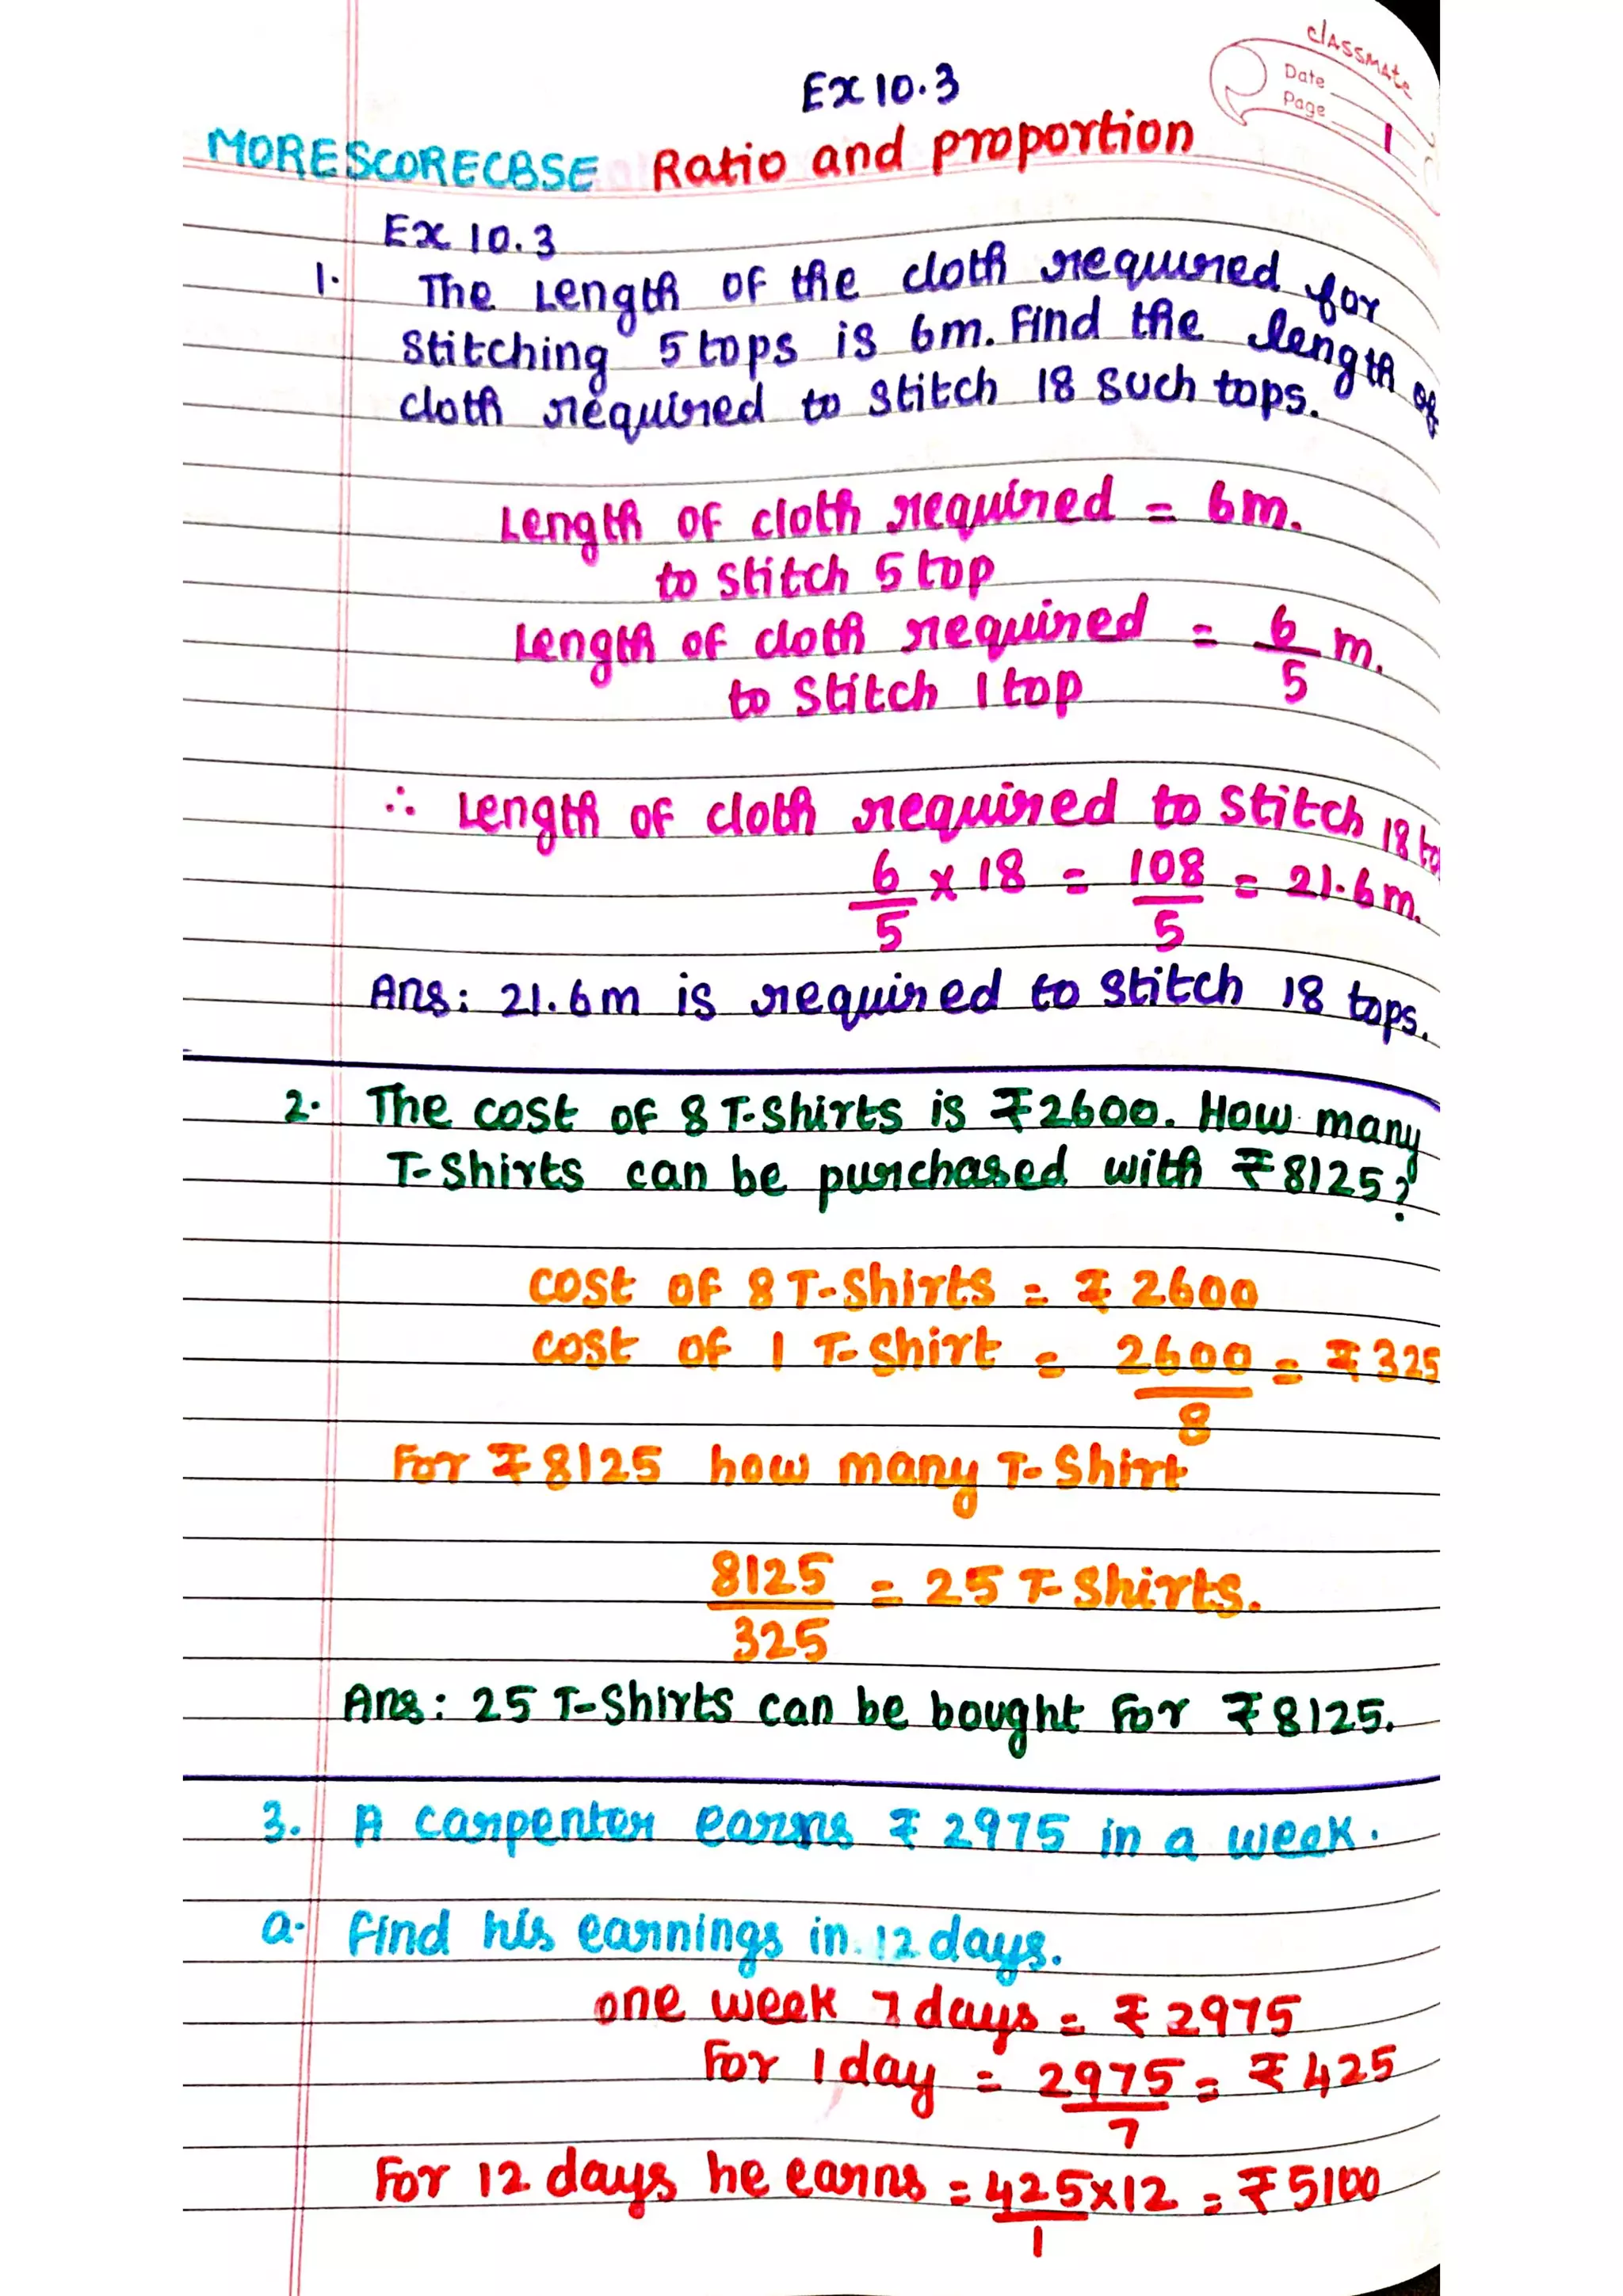 classmate
Date
Page 1
Ex 10.3
MORESCORECBSE Ratio and proportion
Ex 10.3
1. The Length of the cloth required for
stitching 5 tops is 6m. Find the length of
cloth required to stitch 18 such tops.
Length of cloth required = 6m.
to stitch 5 top
Length of cloth required = 6/5 m.
to stitch 1 top
∴ Length of cloth required to stitch 18 to
6/5 x 18 = 108/5 = 21.6m.
Ans: 21.6m is required to stitch 18 tops.
2. The cost of 8 T-Shirts is ₹2600. How many
T-Shirts can be purchased with ₹8125?
cost of 8 T-Shirts = ₹ 2600
cost of 1 T-Shirt = 2600/8 = ₹325
For ₹8125 how many T-Shirt
8125/325 = 25 T-Shirts.
Ans: 25 T-Shirts can be bought for ₹8125.
3. A carpenter earns ₹ 2975 in a week.
a. Find his earnings in 12 days.
one week 7 days = ₹ 2975
For 1 day = 2975/7 = ₹ 425
For 12 days he earns = 425/1 x 12 = ₹5100